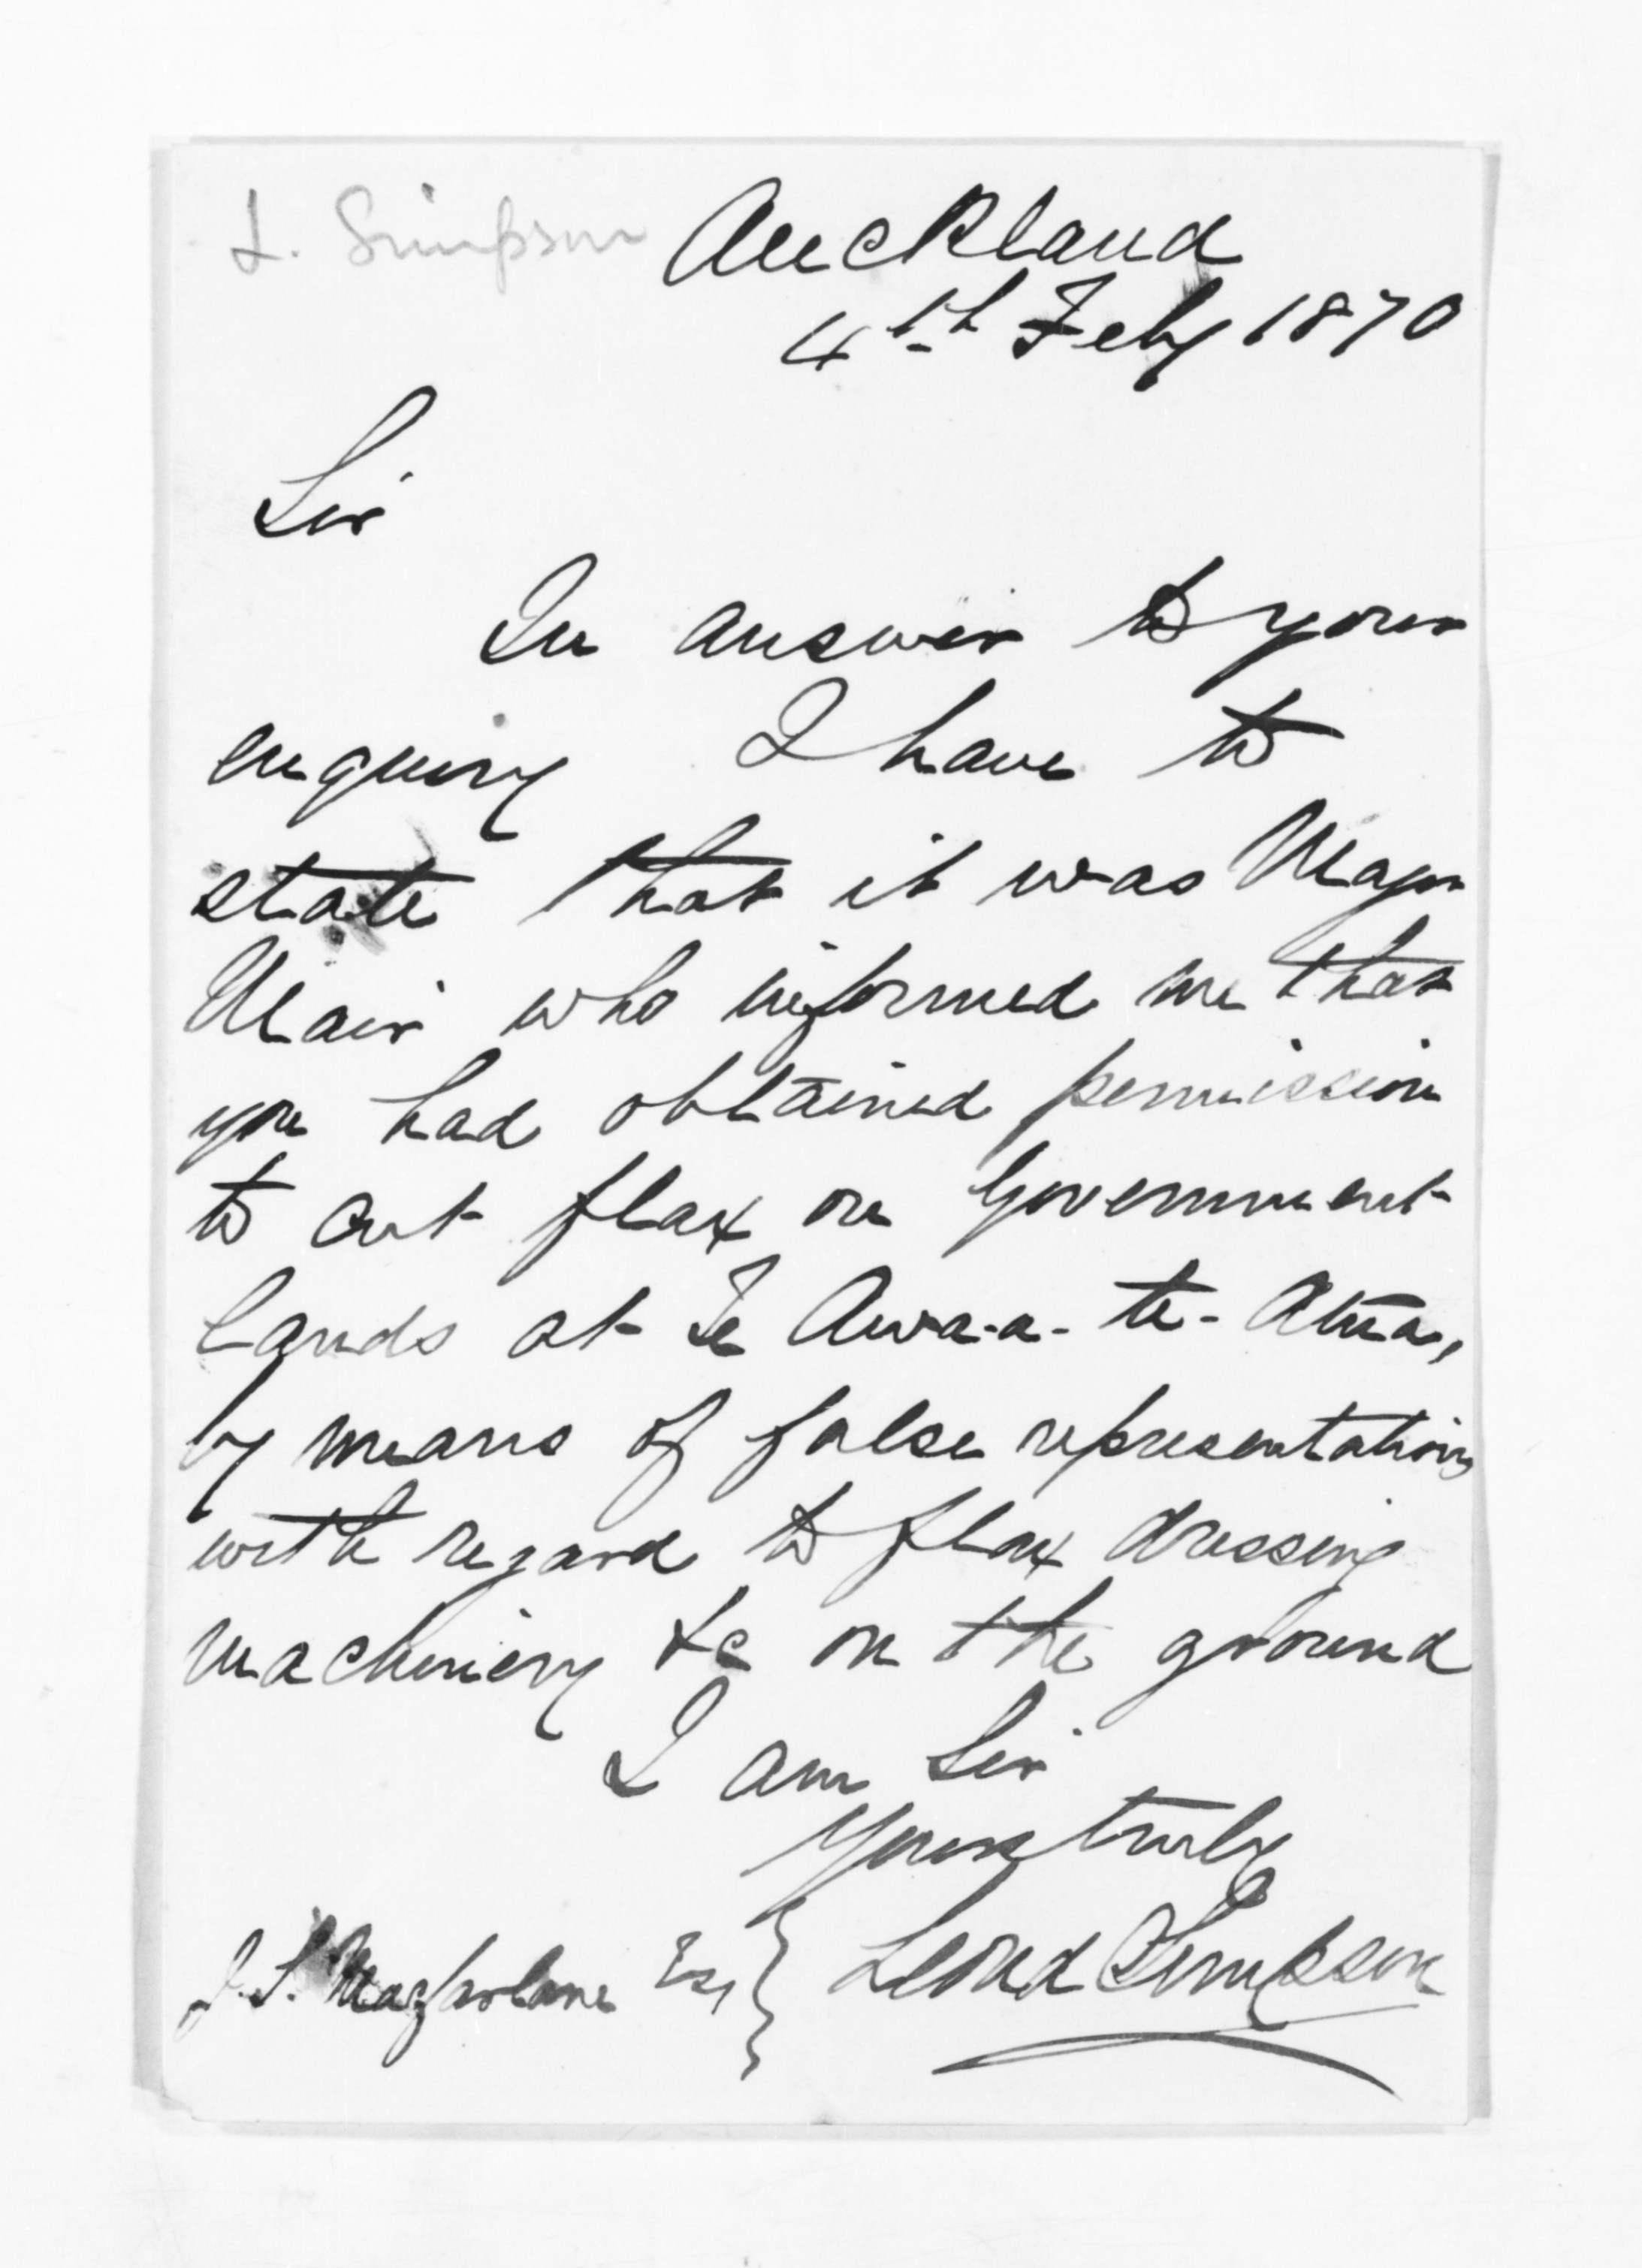 L. Simpson
Auckland
4th Feby 1870
Sir
In answer to your
enquiry I have to
state that it was Major
Mair who informed me that
you had obtained permission
to cut flax on Government
Lands at Te Awa-a-te-Atua,
by means of false representations
with regard to flax dressing
machinery &c on the ground
I am Sir
Yours truly
Leond Simpson
J. S. Macfarlane Esq